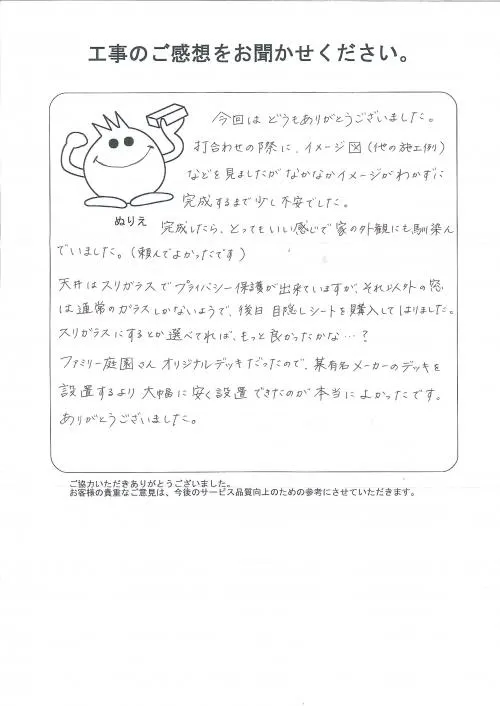 工事のご感想をお聞かせください。
今回は どうもありがとうございました。
打合わせの際に、イメージ図(他の施工例)
などを見ましたがなかなかイメージがわかずに
完成するまで少し不安でした。
ぬりえ
完成したら、とってもいい感じで家の外観にも馴染ん
でいました。(頼んでよかったです)
天井はスリガラスでプライバシー保護が出来ていますが、それ以外の窓
は通常のガラスしかないようで、後日目隠しシートを購入してはりました。
スリガラスにするとか選べてれば、もっと良かったかな…?
ファミリー庭園さんオリジナルデッキだったので、某有名メーカーのデッキを
設置するより大幅に安く設置できたのが本当によかったです。
ありがとうございました。
ご協力いただきありがとうございました。
お客様の貴重なご意見は、今後のサービス品質向上のための参考にさせていただきます。